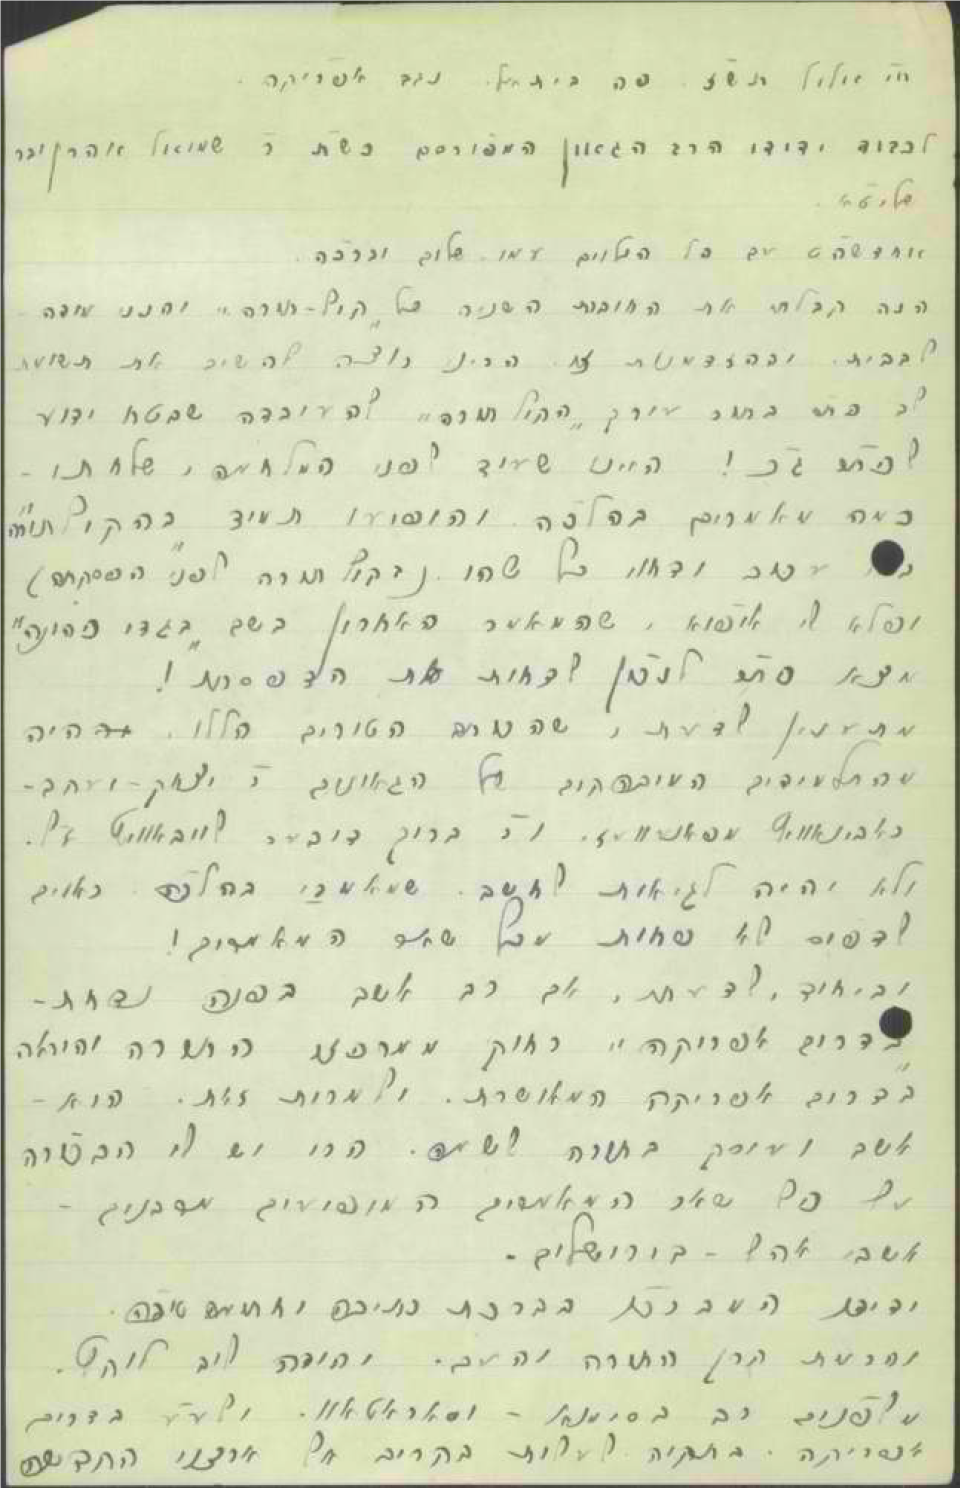 ח״י אלול תש״ז. פה ביתאל. נגב אפריקה.
לכבוד ידידו הרב הגאון המפורסם כש״ת ר׳ שמואל אהרן ובר
שליט״א.
אחדשה״ט עם כל הנלוים עמו. שלום וברכה.
הנה קבלתי את החוברת השניה של „קול-תורה״ והנני מודה-
לבבית. ובהזדמנות זו. הריני רוצה להשיב את תשומת
לב פת״ר בתור עורך „הקול תורה״ להעובדה שבטח ידוע
לפת״ר ג״כ! האיני שעוד לפני המלחמה, שלחתי-
כמה מאמרים בהלכה. והופיעו תמיד בה„קול תורה״
עכוב ודחוי כל שהו. (ב„קול תורה״ לפני הפסקתה)
ופלא לי איפוא, שהמאמר האחרון בשם „בגדי כהונה״
מצא פת״ר לנכון לדחות את הדפסתו!
מתענין לדעת, שהכותב הטורים הללו. היה
מהתלמידים המובהקים של הגאונים ר׳ יצחק-יעקב-
ראבינאוויץ מפאניוועז. ור׳ ברוך דובער לייבאוויץ ז״ל.
ולא יהיה לגיאות לחשב. שמאמרי בהלכה. ראוים
לדפוס לא פחות מכל שאר המאמרים!
וביחוד, לדעתי, אם רב אשר בפנה נדחת-
„בדרום אפריקה״ רחוק ממרכז התורה והוראה
בדרום אפריקה המאושרת. ולמרות זאת. הוא-
יושב ועוסק בתורה לשמה. הרי יש לו הבכורה
על כל שאר המאמרים המופיעים מרבנים-
אשר - בירושלים.
ידידו המברכו בברכת כתיבה וחתימה טובה.
והרמת קרן התורה והעם. יהודה ליב לוקץ.
מלפנים רב בסימנא - וסאראטאוו. ולע״ע בדרום
אפריקה. בתקוה לעלות בקרוב אל ארצנו הקדושה